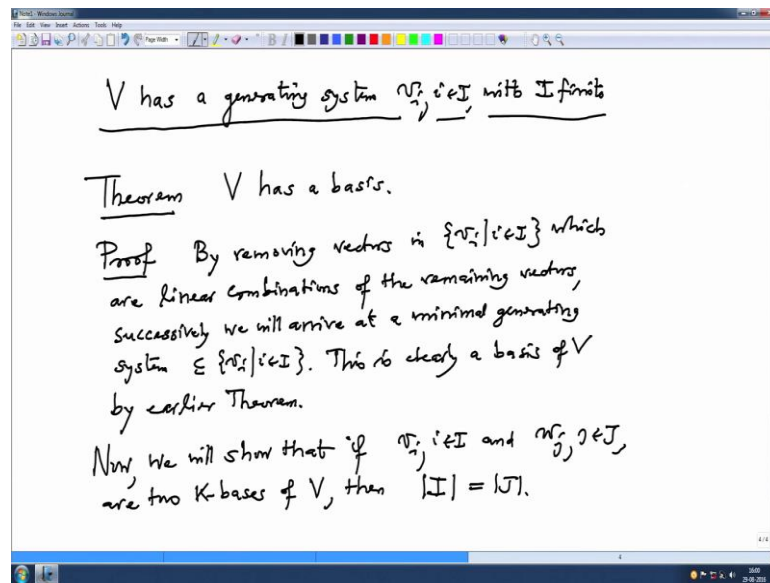 Note1 - Windows Journal
File Edit View Insert Actions Tools Help
Page Width
V has a generating system v_i, i∈I, with I finite
Theorem V has a basis.
Proof By removing vectors in {v_i | i∈I} which
are linear combinations of the remaining vectors,
successively we will arrive at a minimal generating
system ⊆ {v_i | i∈I}. This is clearly a basis of V
by earlier Theorem.
Now, we will show that if v_i, i∈I and w_j, j∈J,
are two K-bases of V, then |I| = |J|.
4/4
4
16:00